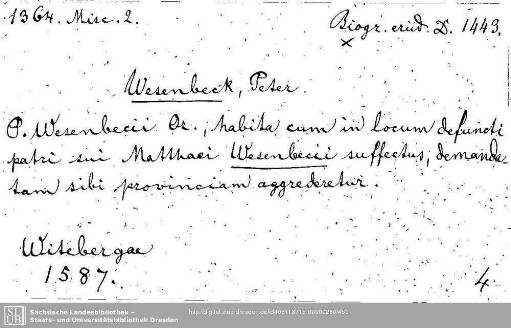 1364. Misc. 2.
Biogr. erud. D. 1443.
×
Wesenbeck, Peter
P. Wesenbecii Or., habita cum in locum defuncti
patri sui Matthaei Wesenbecii suffectus, demanda-
tam sibi provinciam aggrederetur.
Witebergae
1587.
4
SLUB
Sächsische Landesbibliothek –
Staats- und Universitätsbibliothek Dresden